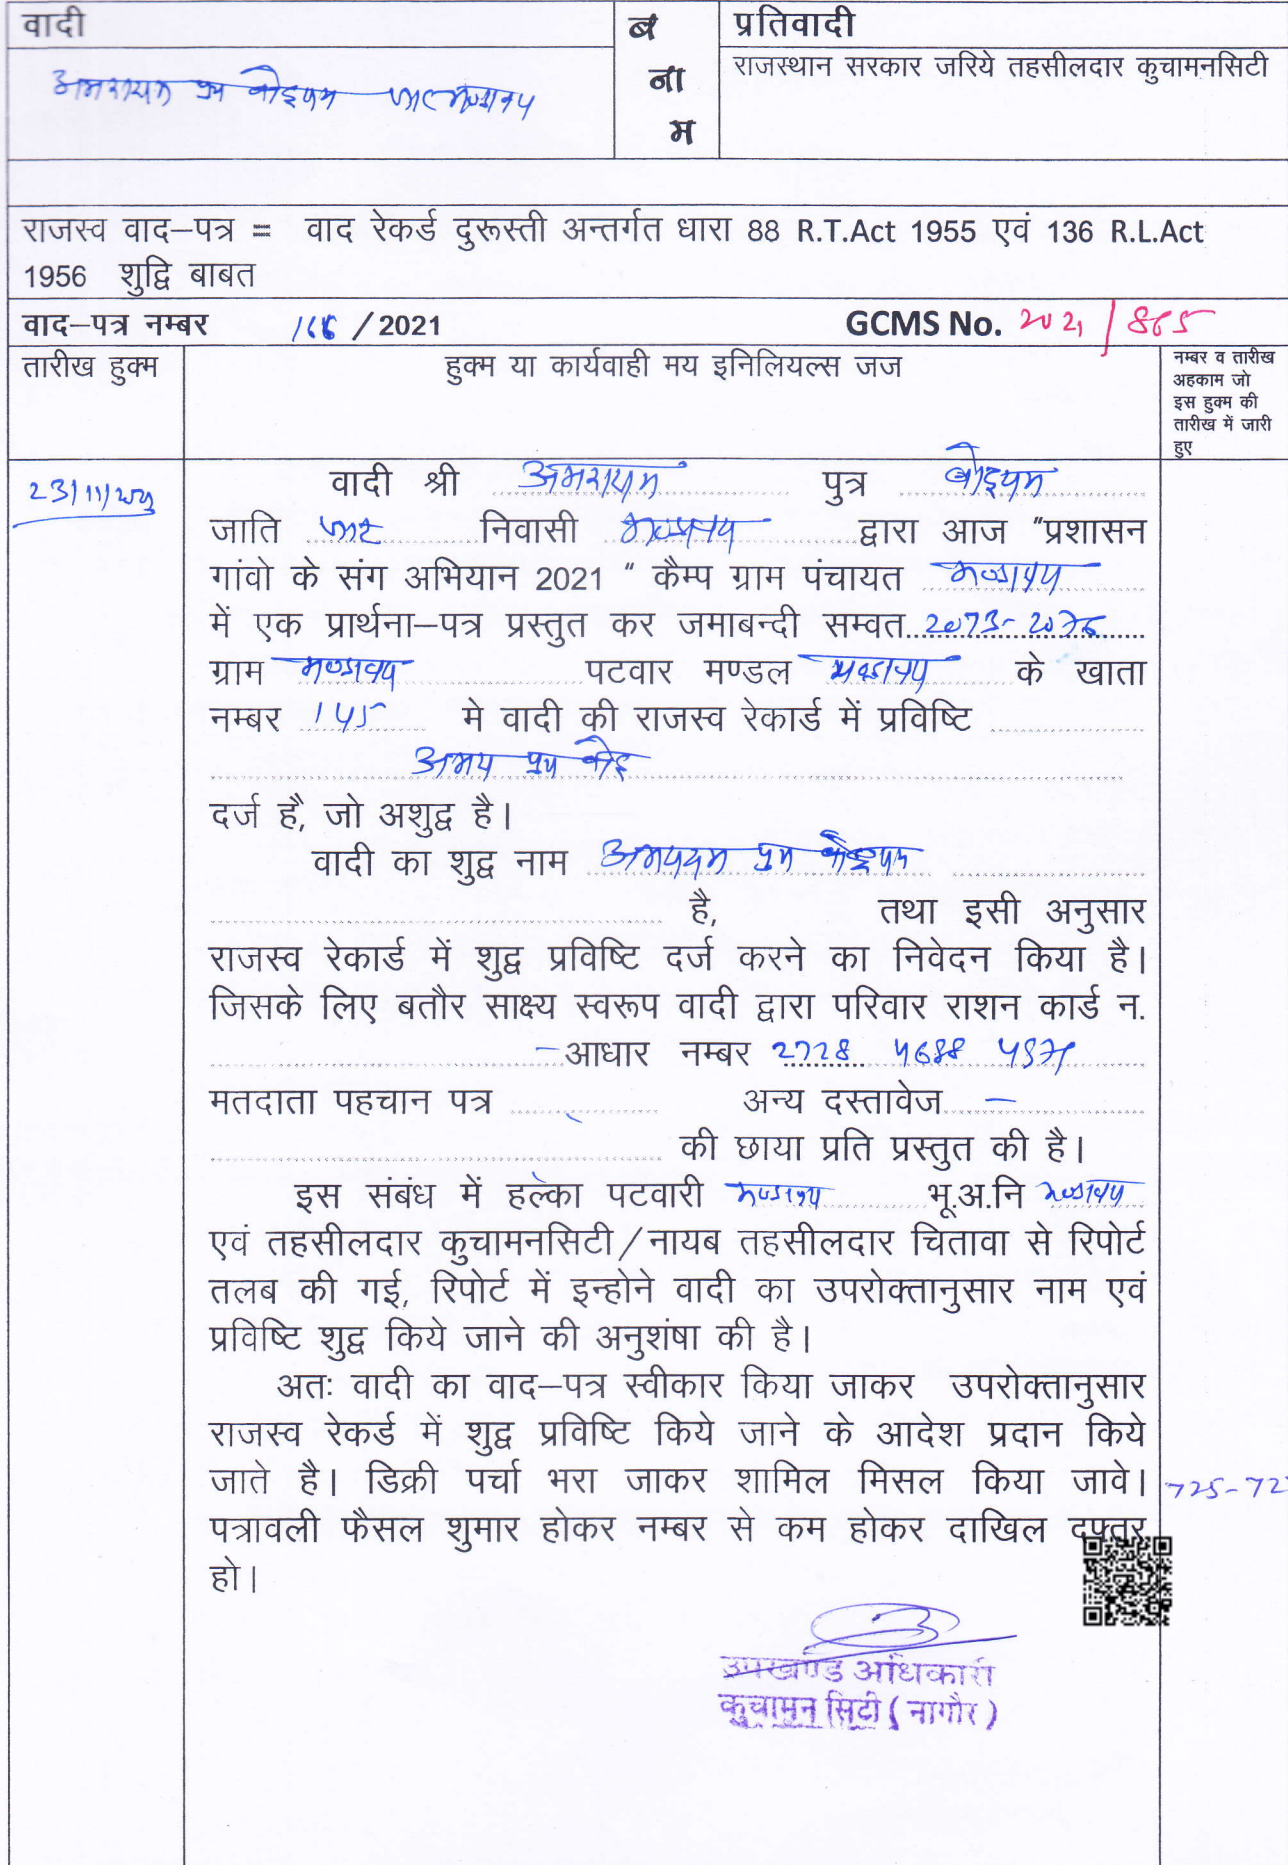 वादी
ब
ना
म
प्रतिवादी
राजस्थान सरकार जरिये तहसीलदार कुचामनसिटी
राजस्व वाद–पत्र = वाद रेकर्ड दुरूस्ती अन्तर्गत धारा 88 R.T.Act 1955 एवं 136 R.L.Act
1956 शुद्वि बाबत
वाद–पत्र नम्बर / 2021 GCMS No. 2021/865
तारीख हुक्म
हुक्म या कार्यवाही मय इनिलियल्स जज
नम्बर व तारीख
अहकाम जो
इस हुक्म की
तारीख में जारी
हुए
वादी श्री अमराराम पुत्र
जाति जाट निवासी द्वारा आज "प्रशासन
गांवो के संग अभियान 2021 " कैम्प ग्राम पंचायत
में एक प्रार्थना–पत्र प्रस्तुत कर जमाबन्दी सम्वत 2073-2076
ग्राम पटवार मण्डल के खाता
नम्बर 145 मे वादी की राजस्व रेकार्ड में प्रविष्टि
दर्ज है, जो अशुद्व है।
वादी का शुद्व नाम
है, तथा इसी अनुसार
राजस्व रेकार्ड में शुद्व प्रविष्टि दर्ज करने का निवेदन किया है।
जिसके लिए बतौर साक्ष्य स्वरूप वादी द्वारा परिवार राशन कार्ड न.
– आधार नम्बर 2728 4688
मतदाता पहचान पत्र अन्य दस्तावेज –
की छाया प्रति प्रस्तुत की है।
इस संबंध में हल्का पटवारी भू.अ.नि
एवं तहसीलदार कुचामनसिटी/नायब तहसीलदार चितावा से रिपोर्ट
तलब की गई, रिपोर्ट में इन्होने वादी का उपरोक्तानुसार नाम एवं
प्रविष्टि शुद्व किये जाने की अनुशंषा की है।
अतः वादी का वाद–पत्र स्वीकार किया जाकर उपरोक्तानुसार
राजस्व रेकर्ड में शुद्व प्रविष्टि किये जाने के आदेश प्रदान किये
जाते है। डिक्री पर्चा भरा जाकर शामिल मिसल किया जावे।
725-72
पत्रावली फैसल शुमार होकर नम्बर से कम होकर दाखिल दफ्तर
हो।
उपखण्ड अधिकारी
कुचामन सिटी ( नागौर )